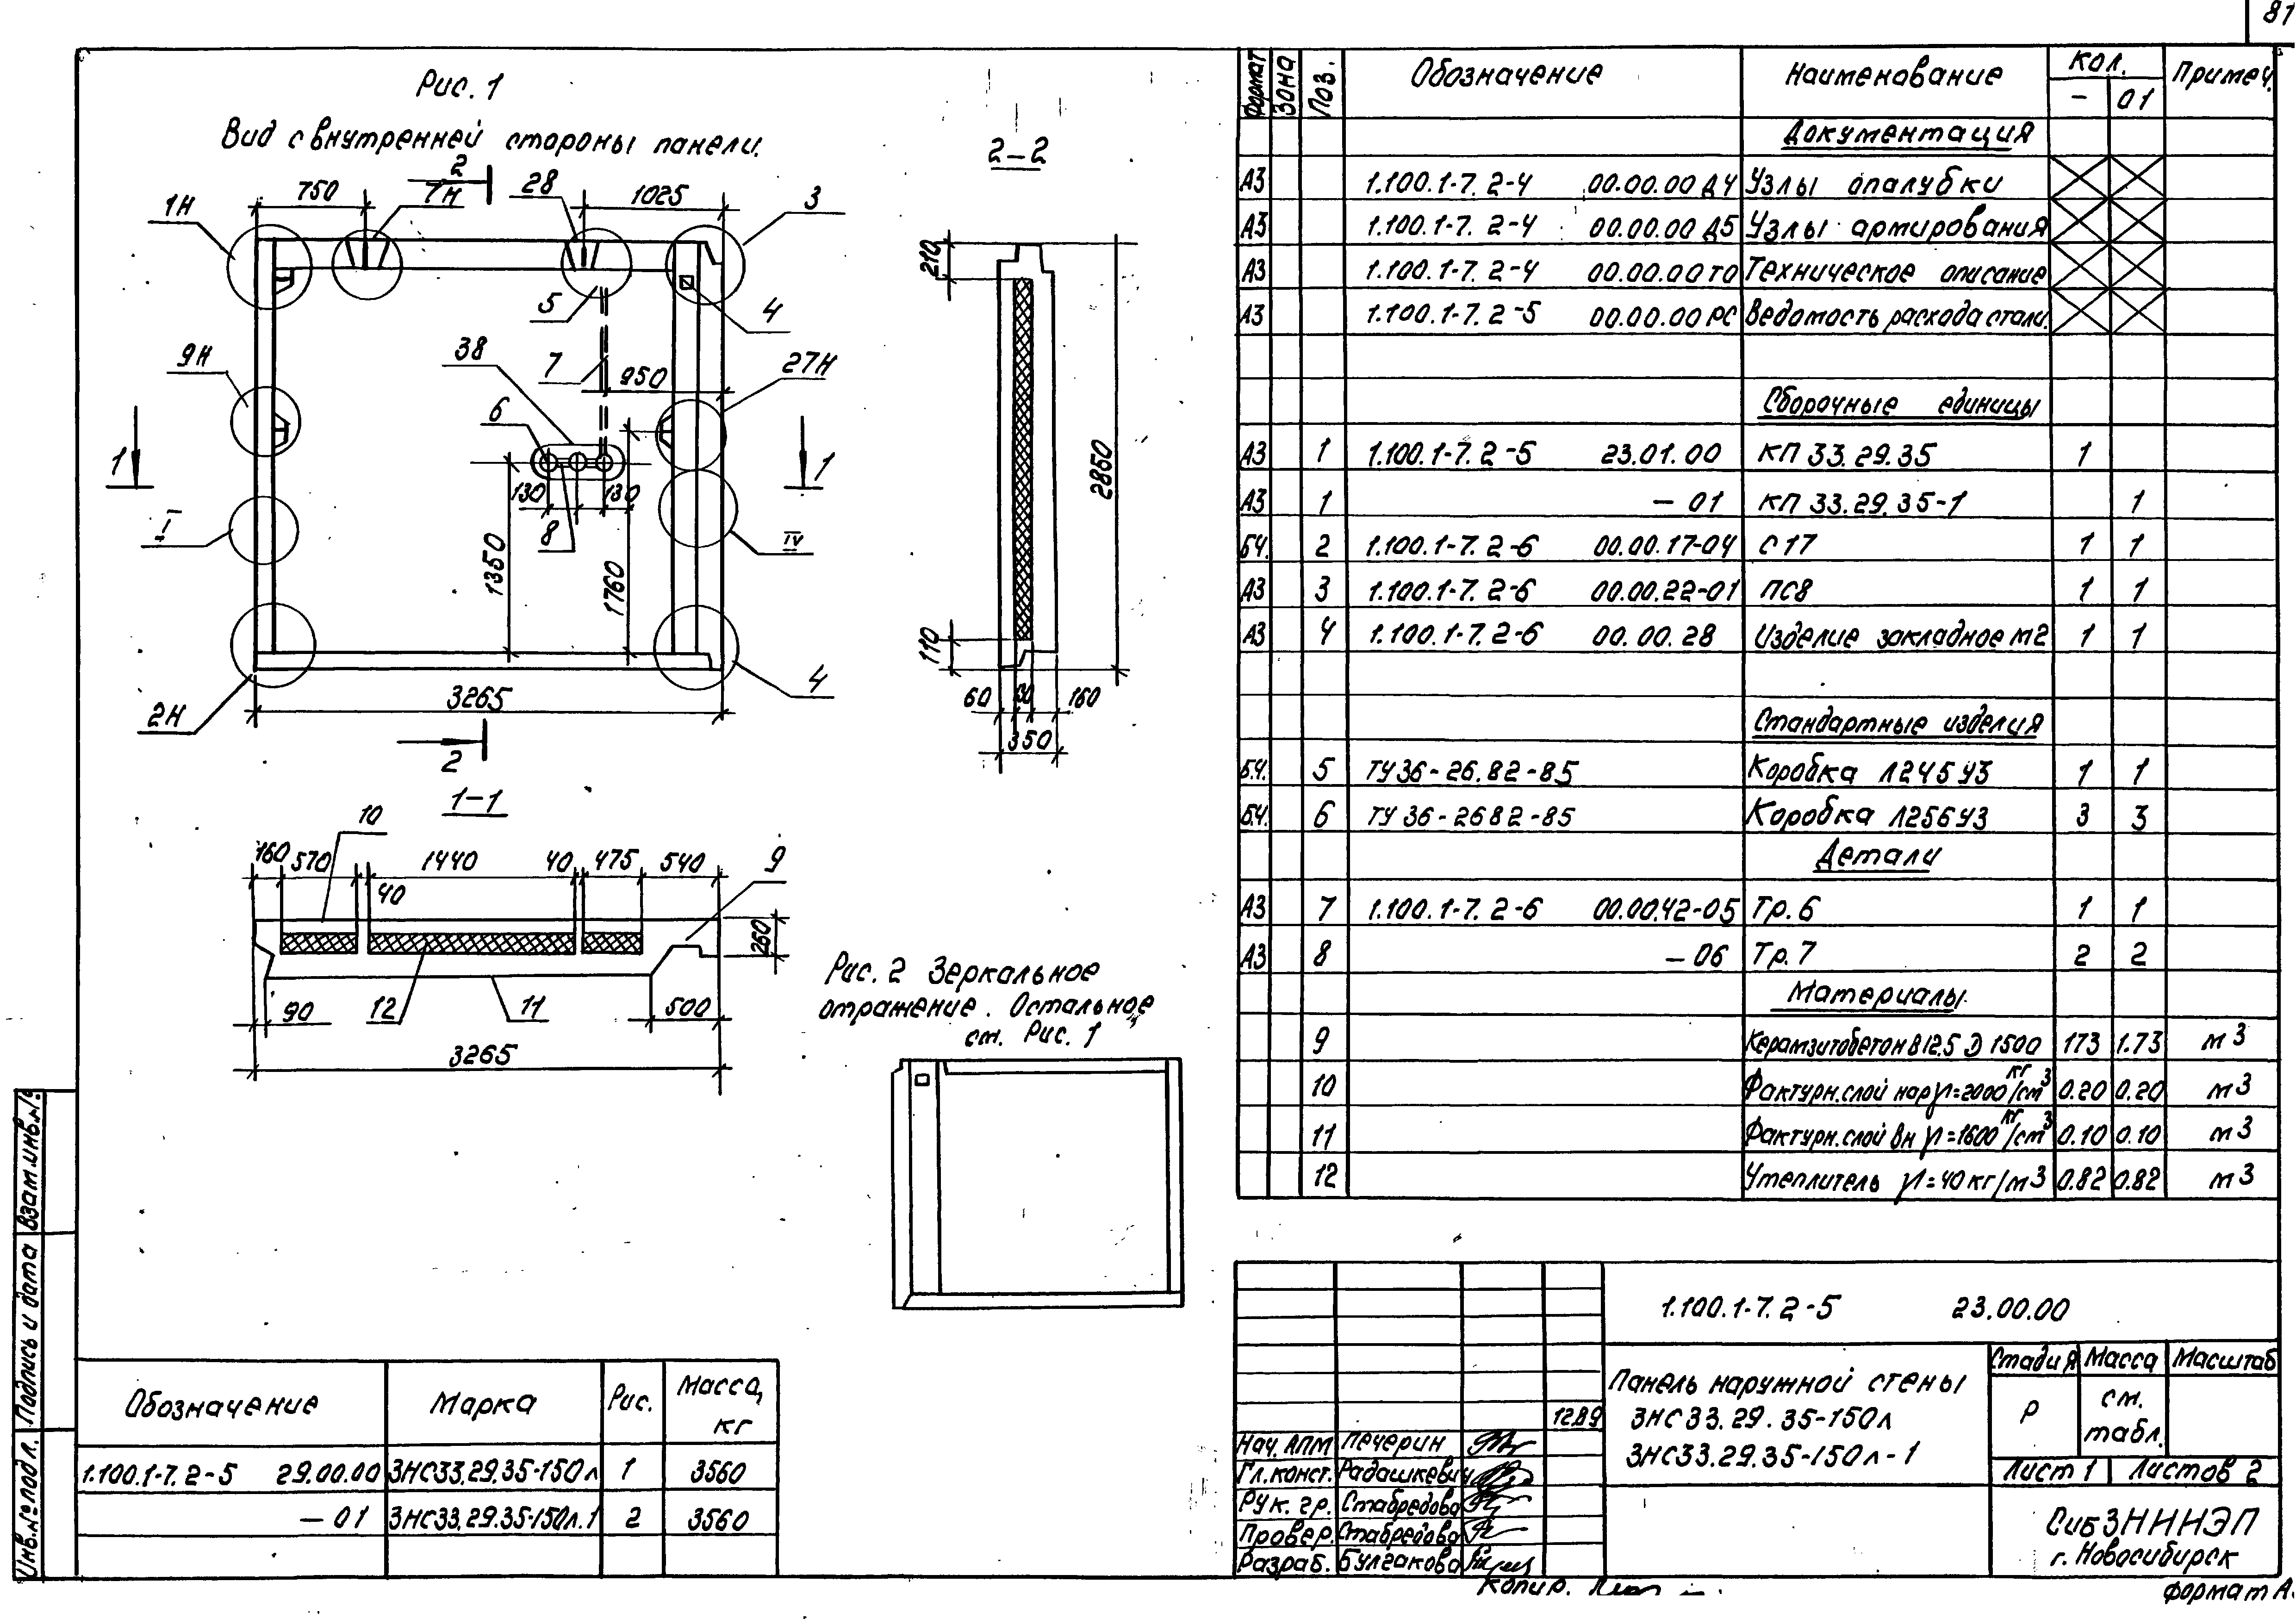 81
Рис. 1
Вид с внутренней стороны панели.
2
750
7Н
28
1025
3
1Н
5
4
9Н
38
7
950
27Н
6
1
1
130
130
I
8
IV
1350
1760
4
2Н
3265
2
2-2
210
2860
110
60
160
350
1-1
10
160
570
1440
40
475
540
9
40
260
90
12
11
500
3265
Рис. 2 Зеркальное
отражение. Остальное
см. Рис. 1
Формат
Зона
Поз.
Обозначение
Наименование
Кол.
Примеч.
-
01
Документация
А3 1.100.1-7. 2-4 00.00.00 Д4 Узлы опалубки
А3 1.100.1-7. 2-4 00.00.00 Д5 Узлы артирования
А3 1.100.1-7. 2-4 00.00.00 ТО Техническое описание
А3 1.100.1-7. 2-5 00.00.00 РС Ведомость расхода стали.
Сборочные единицы
А3 1 1.100.1-7. 2-5 23.01.00 КП 33.29.35 1
А3 1 - 01 КП 33.29.35-1 1
Б4. 2 1.100.1-7. 2-6 00.00.17-04 С 17 1 1
А3 3 1.100.1-7. 2-6 00.00.22-01 ПС8 1 1
А3 4 1.100.1-7. 2-6 00.00.28 Изделие закладное М2 1 1
Стандартные изделия
Б.4. 5 ТУ36-26.82-85 Коробка Л245У3 1 1
Б.4. 6 ТУ 36-2682-85 Коробка Л256У3 3 3
Детали
А3 7 1.100.1-7. 2-6 00.00.42-05 Тр. 6 1 1
А3 8 - 06 Тр. 7 2 2
Материалы
9 Керамзитобетон В12.5 D 1500 173 1.73 м3
10 Фактурн. слой нар γ=2000 кг/см3 0.20 0.20 м3
11 Фактурн. слой вн γ=1600 кг/см3 0.10 0.10 м3
12 Утеплитель γ=40 кг/м3 0.82 0.82 м3
1.100.1-7. 2-5 23.00.00
Панель наружной стены
3НС33.29.35-150л
3НС33.29.35-150л-1
Стадия Масса Масштаб
Р
см.
табл.
Лист 1 Листов 2
СибЗНИИЭП
г. Новосибирск
12.89
Нач. АПМ Печерин
Гл. конст. Радашкевич
Рук. гр. Стабредова
Провер. Стабредова
Разраб. Булгакова
Копир.
формат А3
Обозначение Марка Рис. Масса, кг
1.100.1-7. 2-5 29.00.00 3НС33.29.35-150л 1 3560
- 01 3НС33.29.35-150л.1 2 3560
Взам.инв.№
Подпись и дата
Инв.№ подл.